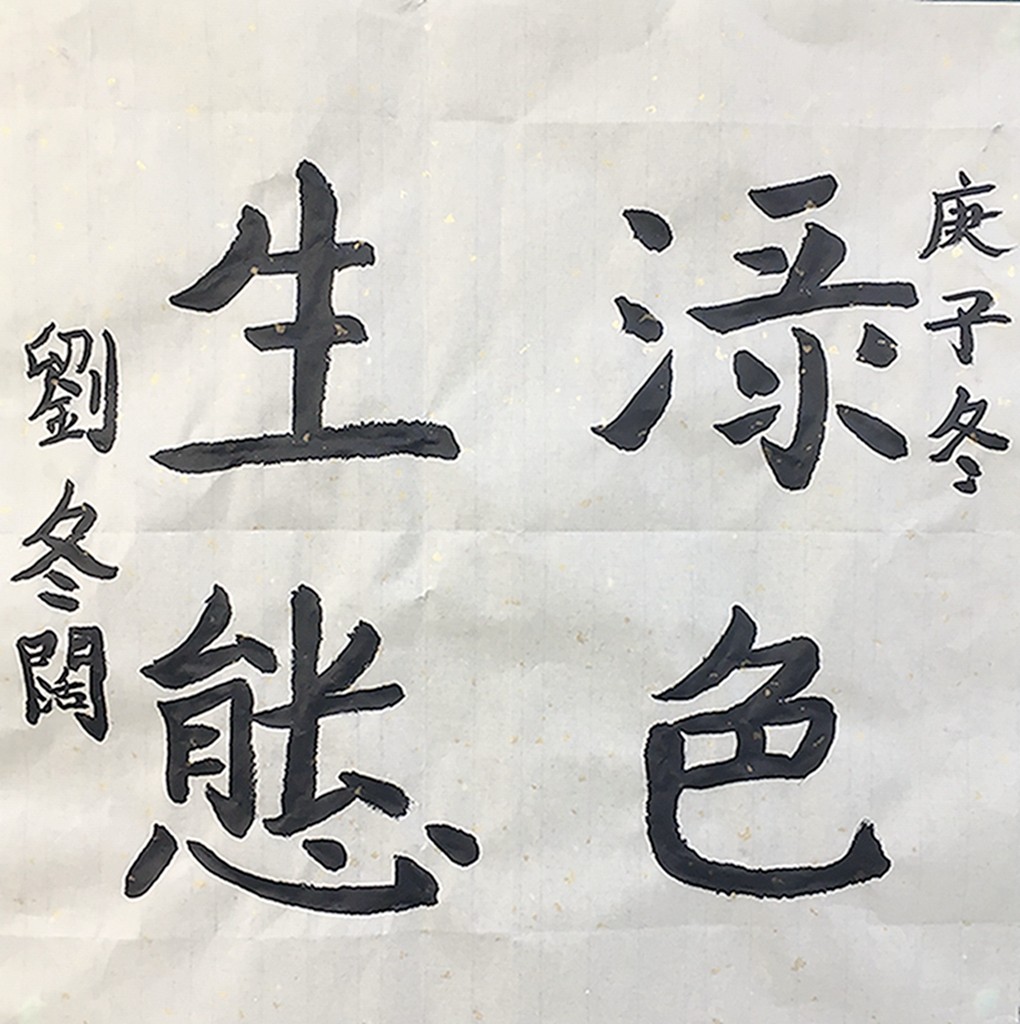 庚子冬
渌色
生態
劉冬闊